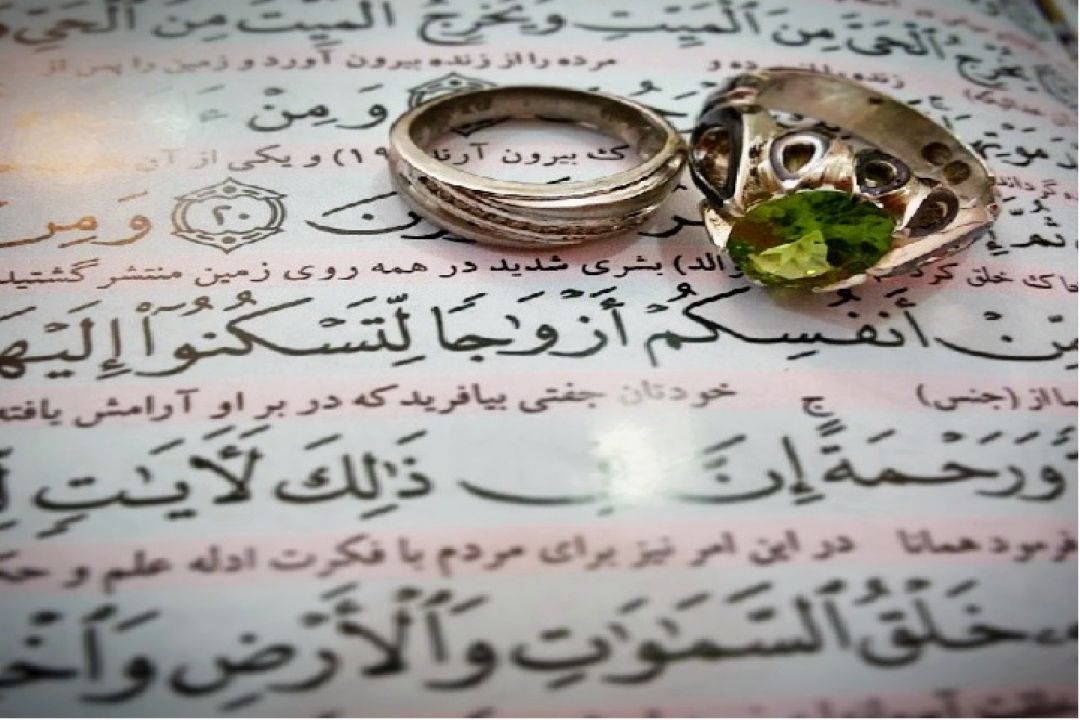 يُخْرِجُ ٱلْحَىَّ مِنَ ٱلْمَيِّتِ وَيُخْرِجُ ٱلْمَيِّتَ مِنَ ٱلْحَىِّ
مرده را از زنده بیرون آورد و زمین را پس از
وَمِنْ
ک بیرون آرند (۱۹) و یکی از آن
۲۰ وَمِنْ
خاک خلق کرد بشری شدید در همه روی زمین منتشر گشتید
مِّنْ أَنفُسِكُمْ أَزْوَٰجًا لِّتَسْكُنُوٓا۟ إِلَيْهَا
ما از (جنس) خودتان جفتی بیافرید که در بر او آرامش یافته
وَرَحْمَةً ۚ إِنَّ فِى ذَٰلِكَ لَـَٔايَـٰتٍ
فرمود همانا در این امر نیز برای مردم با فکرت ادله علم و
خَلْقُ ٱلسَّمَـٰوَٰتِ وَٱلْأَرْضِ وَٱخْ